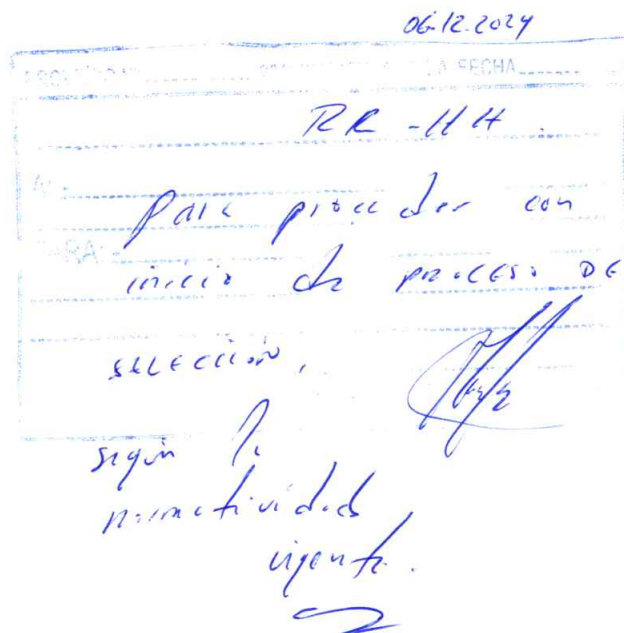 06.12.2024
FECHA
RR-HH.
A:
Para proceder con
PARA:
inicio de proceso DE
selección,
según la
normatividad
vigente.